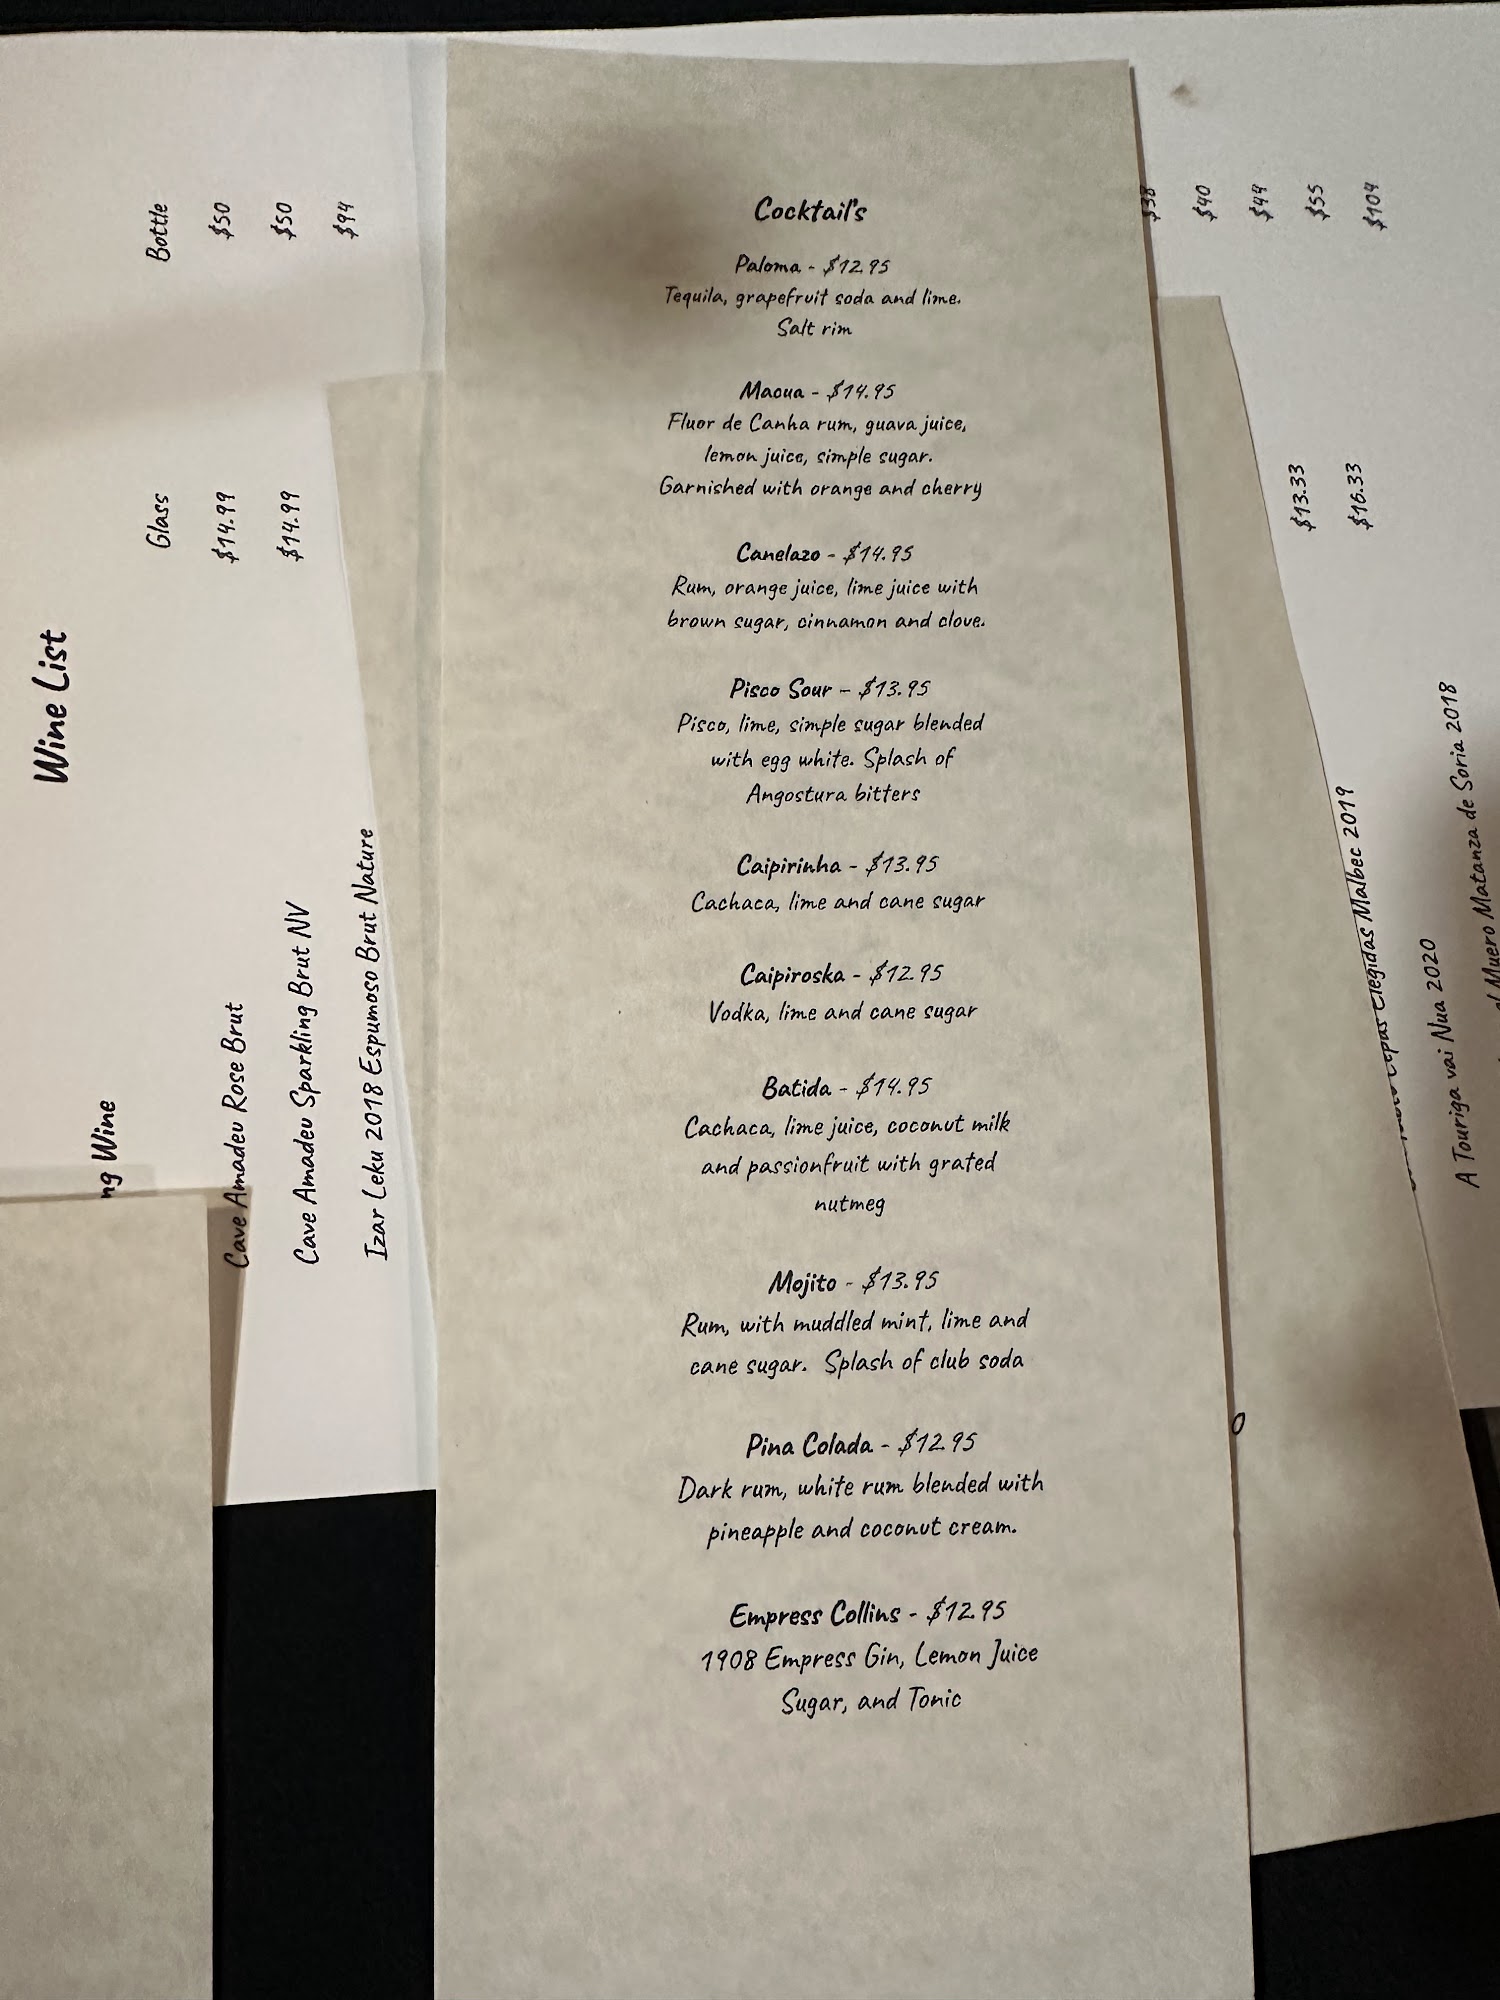 Cocktail's
Paloma - $12.95
Tequila, grapefruit soda and lime.
Salt rim
Macua - $14.95
Fluor de Canha rum, guava juice,
lemon juice, simple sugar.
Garnished with orange and cherry
Canelazo - $14.95
Rum, orange juice, lime juice with
brown sugar, cinnamon and clove.
Pisco Sour – $13.95
Pisco, lime, simple sugar blended
with egg white. Splash of
Angostura bitters
Caipirinha - $13.95
Cachaca, lime and cane sugar
Caipiroska - $12.95
Vodka, lime and cane sugar
Batida - $14.95
Cachaca, lime juice, coconut milk
and passionfruit with grated
nutmeg
Mojito - $13.95
Rum, with muddled mint, lime and
cane sugar.  Splash of club soda
Pina Colada - $12.95
Dark rum, white rum blended with
pineapple and coconut cream.
Empress Collins - $12.95
1908 Empress Gin, Lemon Juice
Sugar, and Tonic
Wine List
ng Wine Glass Bottle
Cave Amadeu Rose Brut $14.99 $50
Cave Amadeu Sparkling Brut NV $14.99 $50
Izar Leku 2018 Espumoso Brut Nature $94
$38
$40
$44
Elegidas Malbec 2019 $13.33 $55
A Touriga vai Nua 2020 $16.33 $104
Muero Matanza de Soria 2018